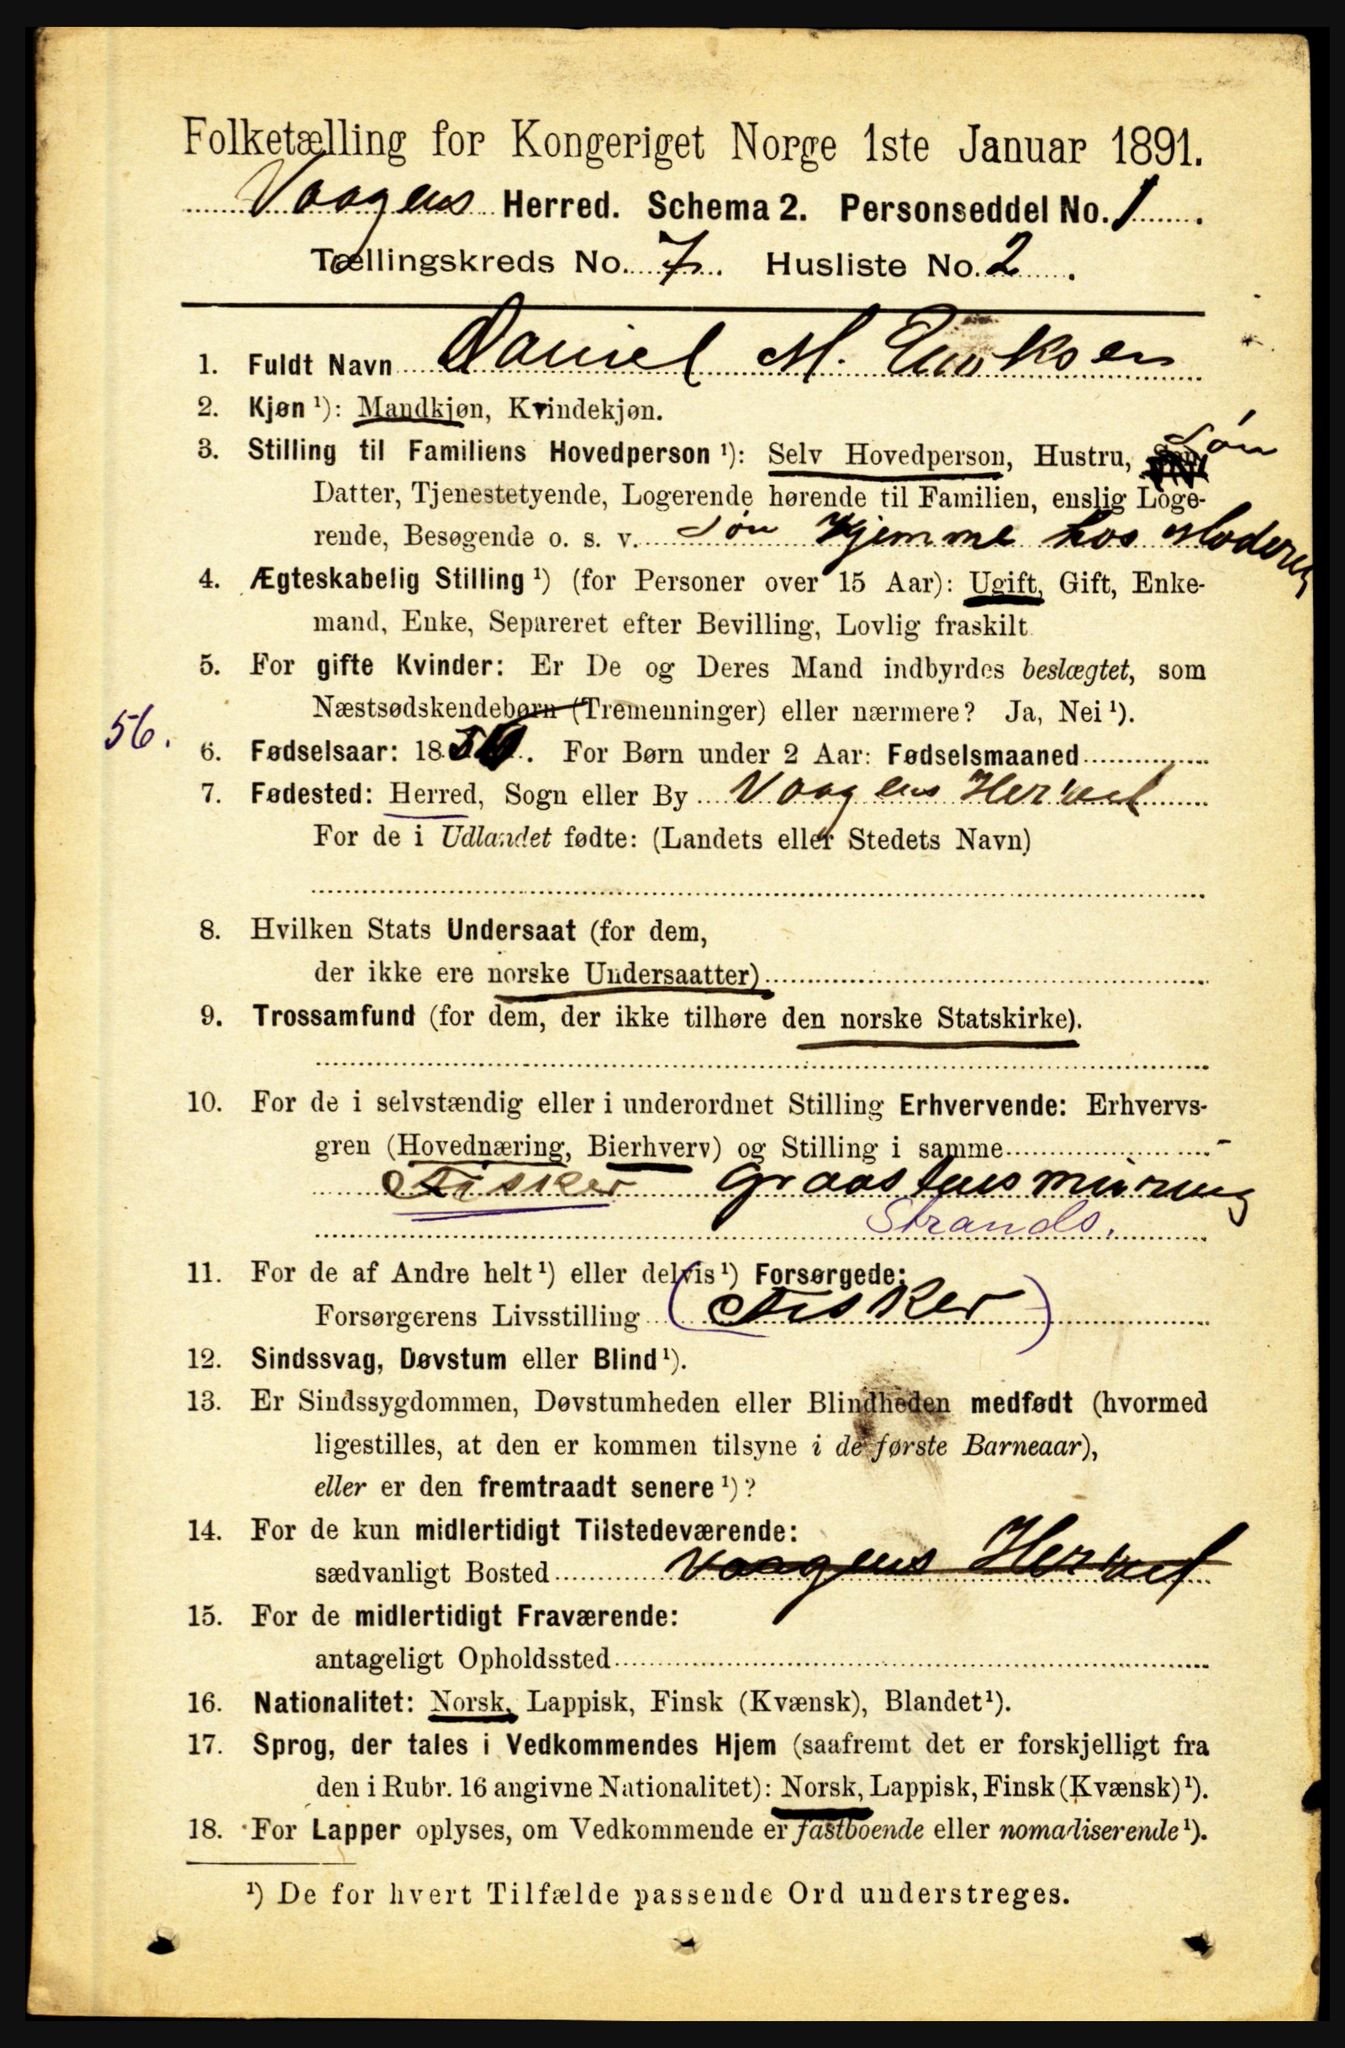 Folketælling for Kongeriget Norge 1ste Januar 1891.
Vaagens Herred. Schema 2. Personseddel No. 1.
Tællingskreds No. 7. Husliste No. 2.
1. Fuldt Navn Daniel M.
2. Kjøn ¹): Mandkjøn, Kvindekjøn.
3. Stilling til Familiens Hovedperson ¹): Selv Hovedperson, Hustru, Søn
Datter, Tjenestetyende, Logerende hørende til Familien, enslig Loge-
rende, Besøgende o. s. v. Søn Hjemme hos Moderen
4. Ægteskabelig Stilling ¹) (for Personer over 15 Aar): Ugift, Gift, Enke-
mand, Enke, Separeret efter Bevilling, Lovlig fraskilt
5. For gifte Kvinder: Er De og Deres Mand indbyrdes beslægtet, som
Næstsødskendebørn (Tremenninger) eller nærmere? Ja, Nei ¹).
56.
6. Fødselsaar: 1856. For Børn under 2 Aar: Fødselsmaaned
7. Fødested: Herred, Sogn eller By Vaagens Herred
For de i Udlandet fødte: (Landets eller Stedets Navn)
8. Hvilken Stats Undersaat (for dem,
der ikke ere norske Undersaatter)
9. Trossamfund (for dem, der ikke tilhøre den norske Statskirke).
10. For de i selvstændig eller i underordnet Stilling Erhvervende: Erhvervs-
gren (Hovednæring, Bierhverv) og Stilling i samme
Fisker Graastensmuring
Strands.
11. For de af Andre helt ¹) eller delvis ¹) Forsørgede:
Forsørgerens Livsstilling (Fisker)
12. Sindssvag, Døvstum eller Blind ¹).
13. Er Sindssygdommen, Døvstumheden eller Blindheden medfødt (hvormed
ligestilles, at den er kommen tilsyne i de første Barneaar),
eller er den fremtraadt senere ¹)?
14. For de kun midlertidigt Tilstedeværende:
sædvanligt Bosted Vaagens Herred
15. For de midlertidigt Fraværende:
antageligt Opholdssted
16. Nationalitet: Norsk, Lappisk, Finsk (Kvænsk), Blandet ¹).
17. Sprog, der tales i Vedkommendes Hjem (saafremt det er forskjelligt fra
den i Rubr. 16 angivne Nationalitet): Norsk, Lappisk, Finsk (Kvænsk) ¹).
18. For Lapper oplyses, om Vedkommende er fastboende eller nomadiserende ¹).
¹) De for hvert Tilfælde passende Ord understreges.